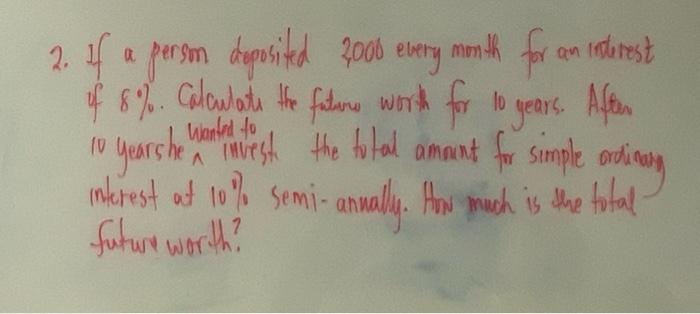 2. If a person deposited 2000 every month for an interest
of 8%. Calculate the future worth for 10 years. After
10 years he wanted to invest the total amount for simple ordinary
interest at 10% semi-annually. How much is the total
future worth?